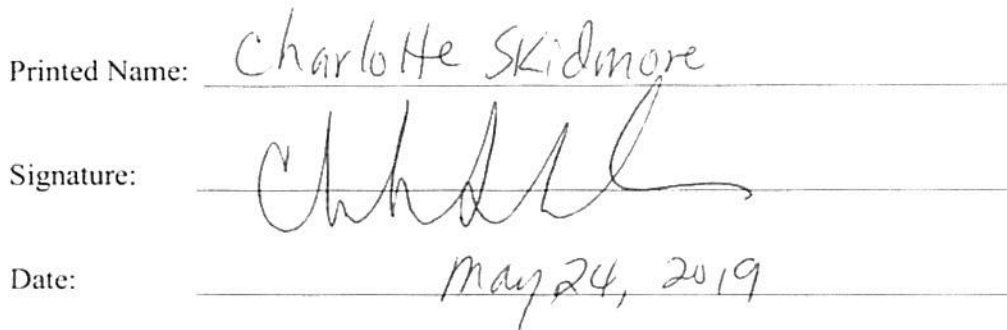 Printed Name: Charlotte Skidmore
Signature:
Date: May 24, 2019